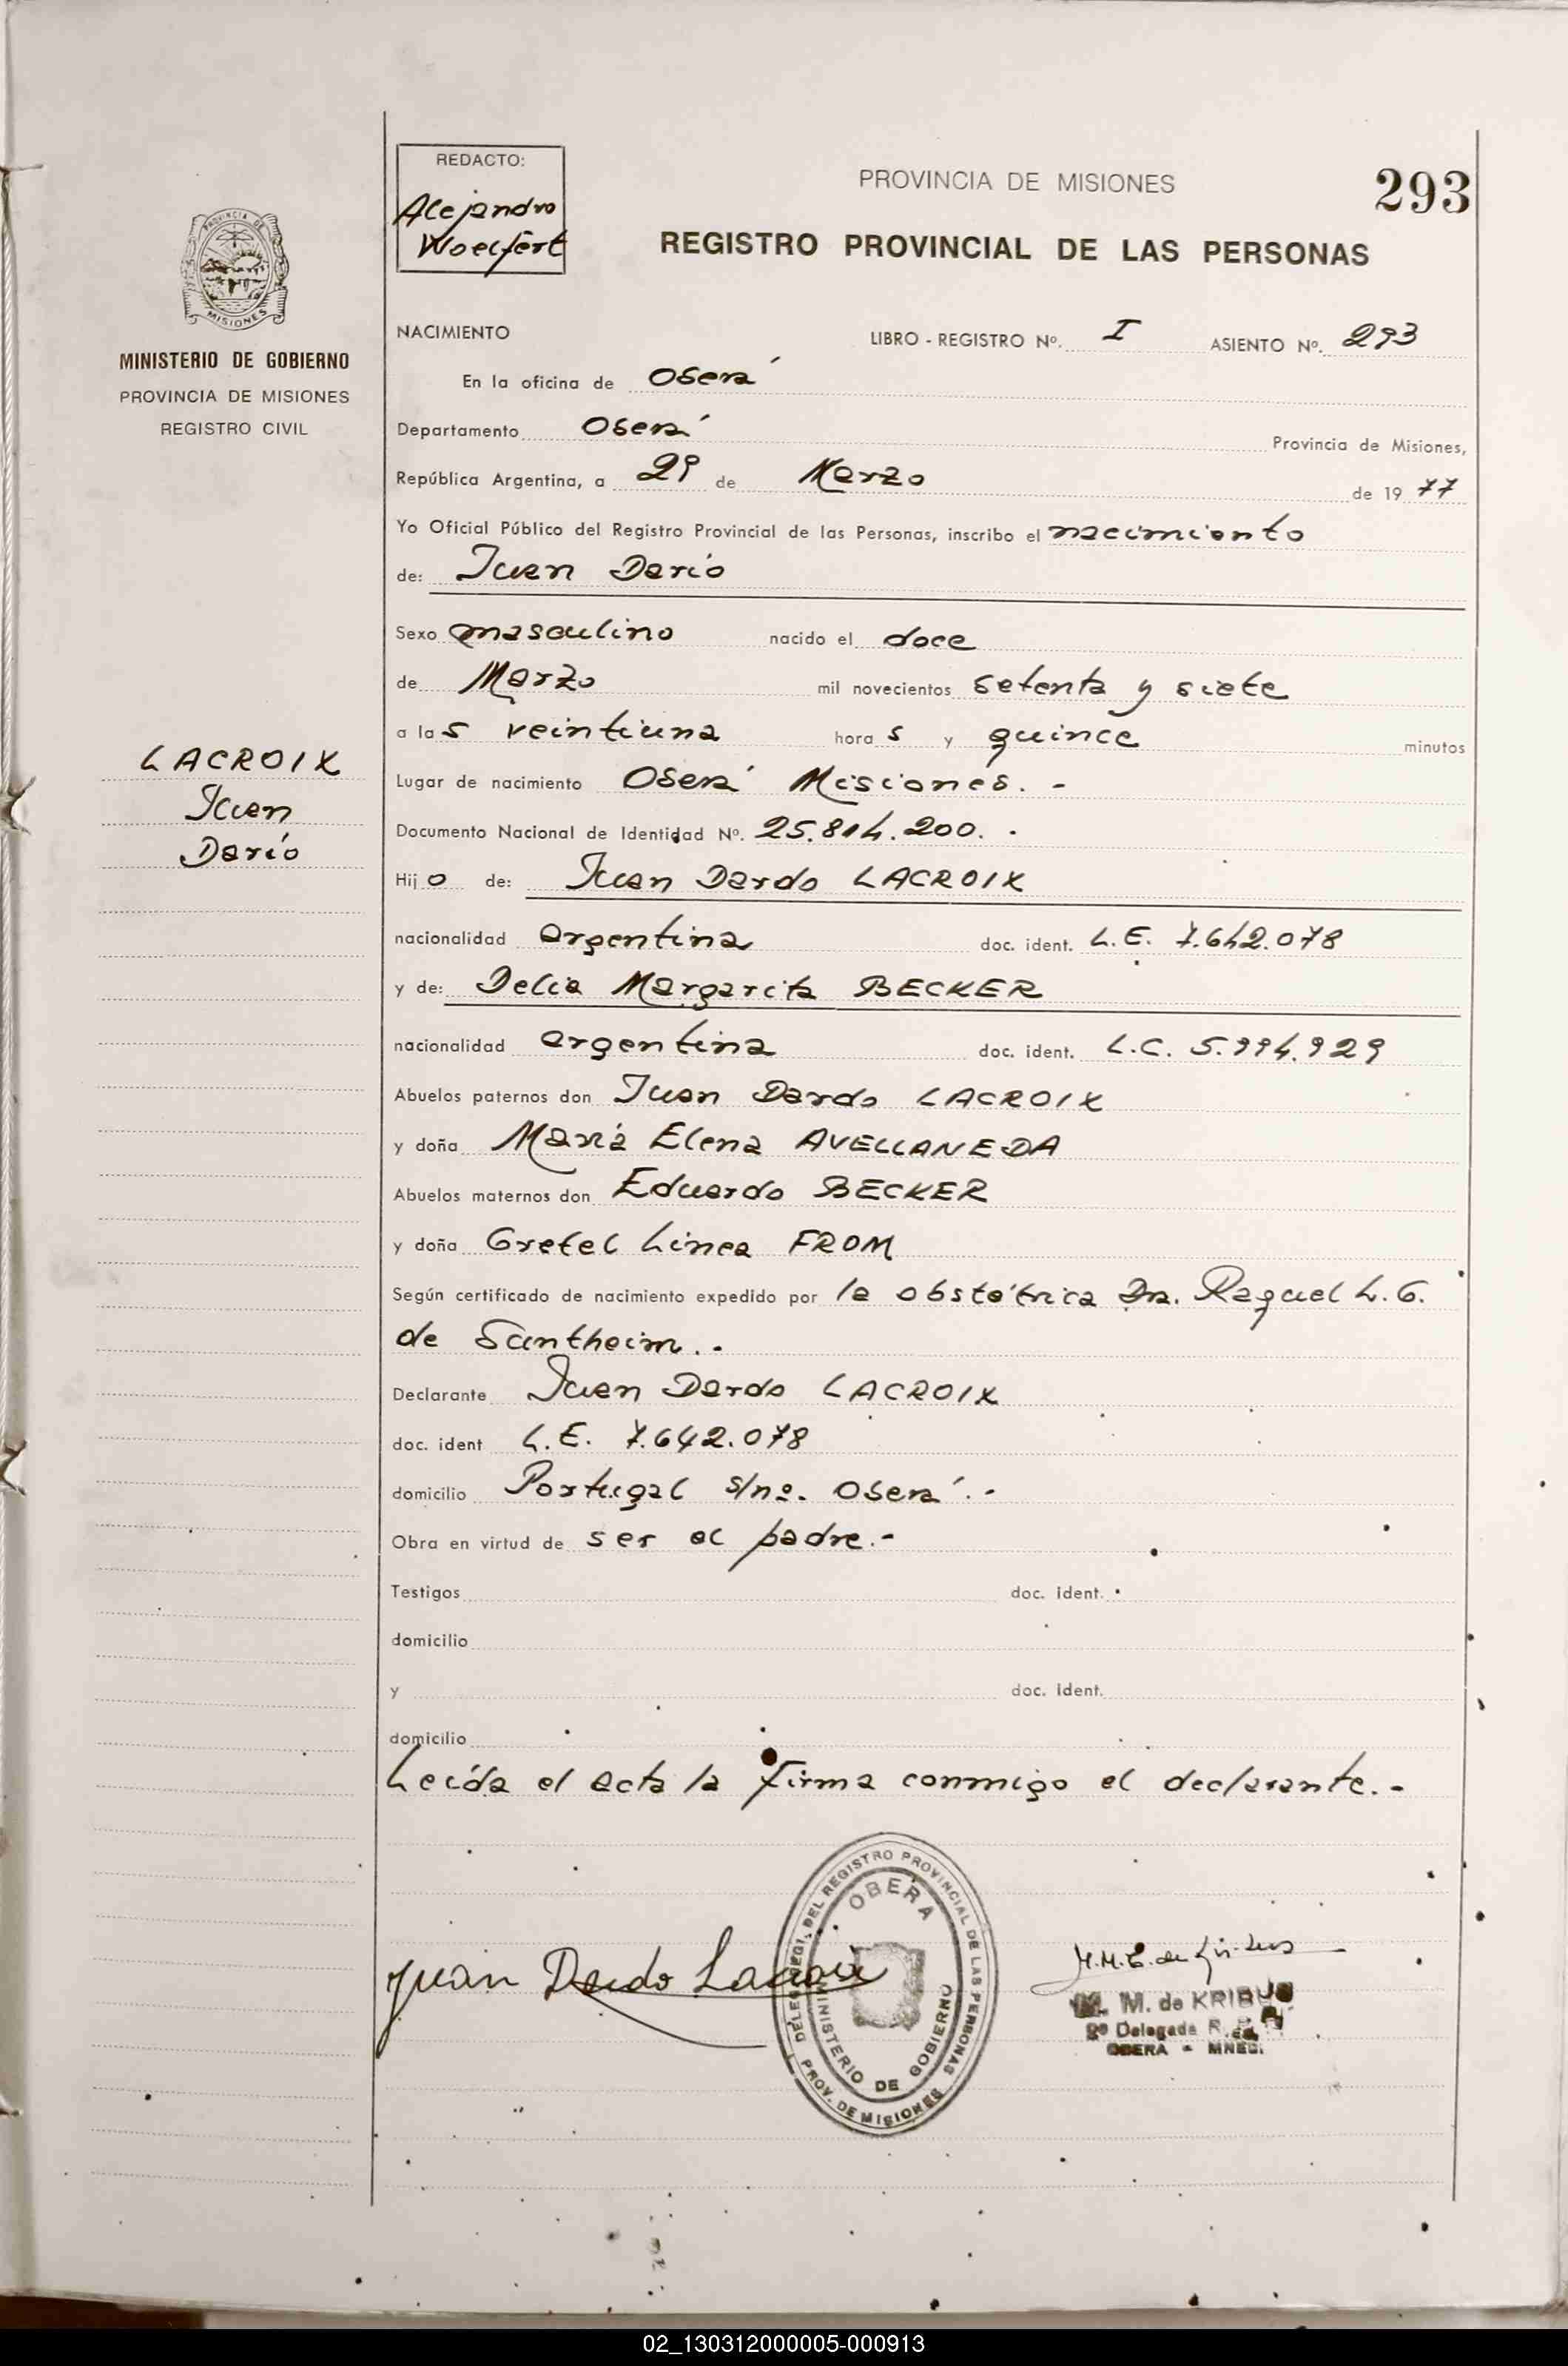 REDACTO:
Alejandro
Woelfert
PROVINCIA DE MISIONES
293
REGISTRO PROVINCIAL DE LAS PERSONAS
PROVINCIA DE
MISIONES
MINISTERIO DE GOBIERNO
PROVINCIA DE MISIONES
REGISTRO CIVIL
NACIMIENTO LIBRO - REGISTRO Nº. I ASIENTO Nº. 293
En la oficina de Oberá
Departamento Oberá Provincia de Misiones,
República Argentina, a 29 de Marzo de 1977
Yo Oficial Público del Registro Provincial de las Personas, inscribo el nacimiento
de: Juan Darío
Sexo masculino nacido el doce
de Marzo mil novecientos setenta y siete
a las veintiuna horas y quince minutos
LACROIX
Juan
Darío
Lugar de nacimiento Oberá Misiones. -
Documento Nacional de Identidad Nº. 25.814.200. -
Hijo de: Juan Dardo LACROIX
nacionalidad argentina doc. ident. L.E. 7.642.078
y de: Delia Margarita BECKER
nacionalidad argentina doc. ident. L.C. 5.994.929
Abuelos paternos don Juan Dardo LACROIX
y doña María Elena AVELLANEDA
Abuelos maternos don Eduardo BECKER
y doña Gretel Linea FROM
Según certificado de nacimiento expedido por la obstétrica Dra. Raquel L. G.
de Suntheim. -
Declarante Juan Dardo LACROIX
doc. ident L.E. 7.642.078
domicilio Portugal s/nº. Oberá. -
Obra en virtud de ser el padre. -
Testigos doc. ident.
domicilio
y doc. ident.
domicilio
Leída el acta la firma conmigo el declarante. -
DEL REGISTRO PROVINCIAL DE LAS PERSONAS
OBERA
MINISTERIO DE GOBIERNO
PROV. DE MISIONES
Juan Dardo Lacroix
M. M. de KRIBUS
2º Delegada R.
OBERA - MNES.
02_130312000005-000913